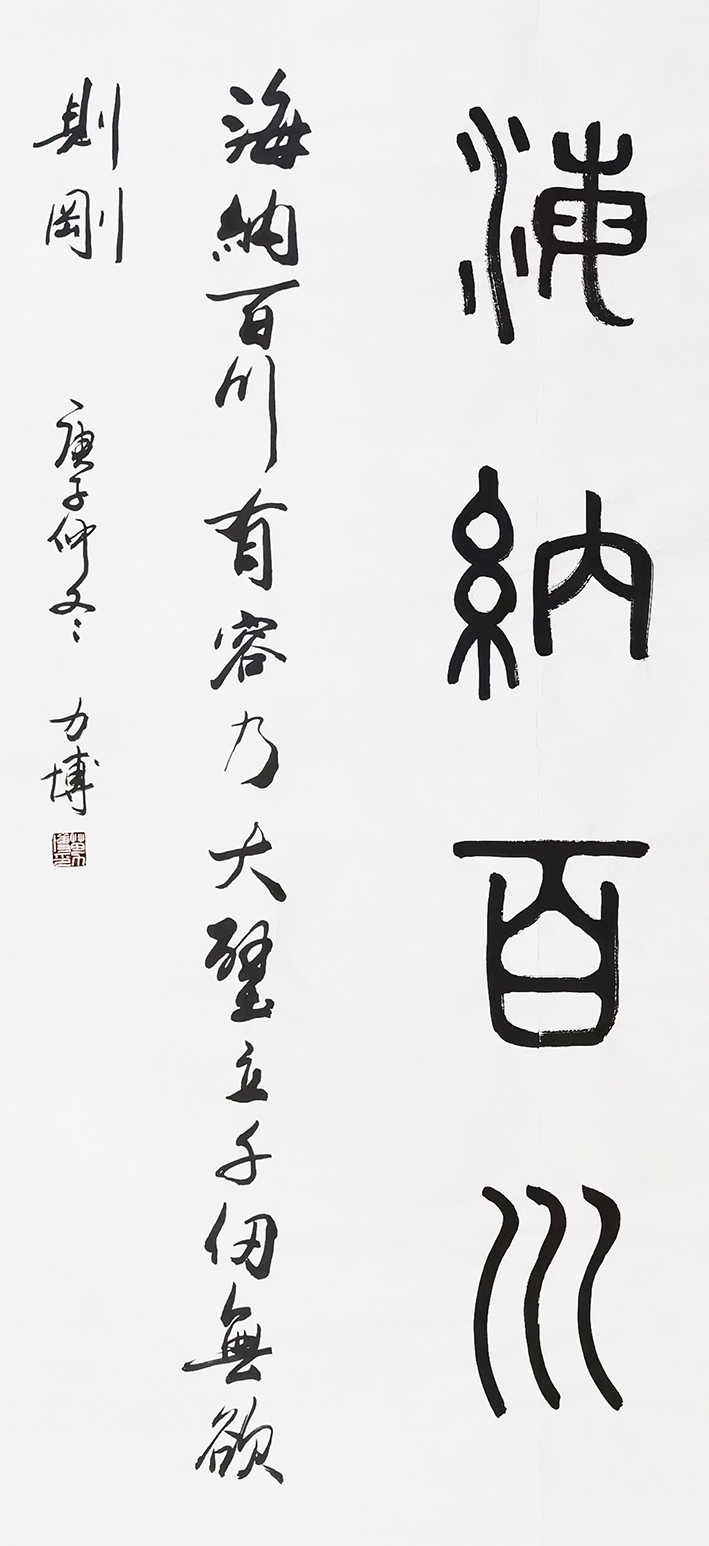 海納百川
海納百川有容乃大壁立千仞無欲
則剛
庚子仲冬 力博